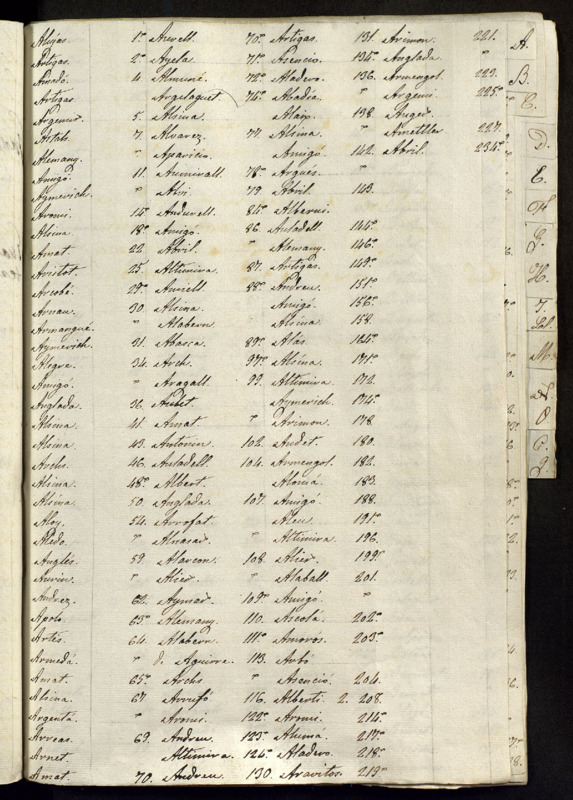 Alujas. 1.º Auvell. 70.º Artigas. 131. Arimon. 221.
Artigas. 2.º Ayela. 71.º Asencio. 134.º Anglada "
Amadó. 4. Almuni. 72.º Aladern. 136. Armengol. 223.
Artigas. Argelaguet. 74.º Abadia. " Argemi. 225.º
Argemir. 5. Alsina. Aloy. 138. Auger.
Artals. 7. Alvarez. 77. Alsina. " Ametller. 227.
Alemany. " Aparicio. Amigó. 142. Abril. 234.º
Amigó. 11. Armirall. 78.º Argues. "
Aymerich. " Alvi. 79. Abril. 143.
Aromi. 14.º Andurell. 84.º Alberni.
Alsina. 18.º Amigó. 86. Auladell. 144.º
Amat. 22. Abril. " Alemany. 146.º
Aristot. 25. Altimira. 87. Artigas. 149.º
Arcobé. 29.º Auriell. 88.º Andreu. 151.º
Arnau. 30. Alsina. Amigó. 156.º
Armangué. " Alabern. Alsina. 158.
Aymerich. 31. Abasca. 89.º Alás. 164.º
Alegre. 34. Arch. 97.º Alsina. 171.º
Amigó. " Aragall. 99. Altimira. 172.
Anglada. 36. Audet. Aymerich. 174.º
Alsina. 41. Amat. " Arimon. 178.
Alsina. 43. Antonin. 102. Audet. 180.
Archs. 46. Auladell. 104. Armengol. 182.
Alsina. 48.º Albert. Alomá. 183.
Alsina. 50. Anglada. 107. Amigó. 188.
Aloy. 54. Arrofat. Aleu. 191.º
Aledo. " Almasar. " Altimira. 196.
Anglés. 59. Alarcon. 108. Alier. 199.º
" Alier. " Alaball. 201.
Andrez. 62. Aymar. 109.º Amigó. "
Apolo. 63.º Alemany. 110. Ascolá. 202.º
Artés. 64. Alabern. 111.º Amorós. 203.º
Armedá. " de Aguirre. 113. Arbó
Amat. 65.º Archs " Asenció. 204.
Alsina. 67. Arrufó 116. Alberti. 2. 208.
Argentá. " Aromi. 122.º Aromi. 214.º
Arreas. 69. Andreu. 123.º Alumá. 217.º
Arnet. Altimira. 126.º Aladern. 218.º
Amat. 70. Andreu. 130. Aravitos. 219.º
A.
B.
C.
D.
E.
F.
G.
H.
M.
O